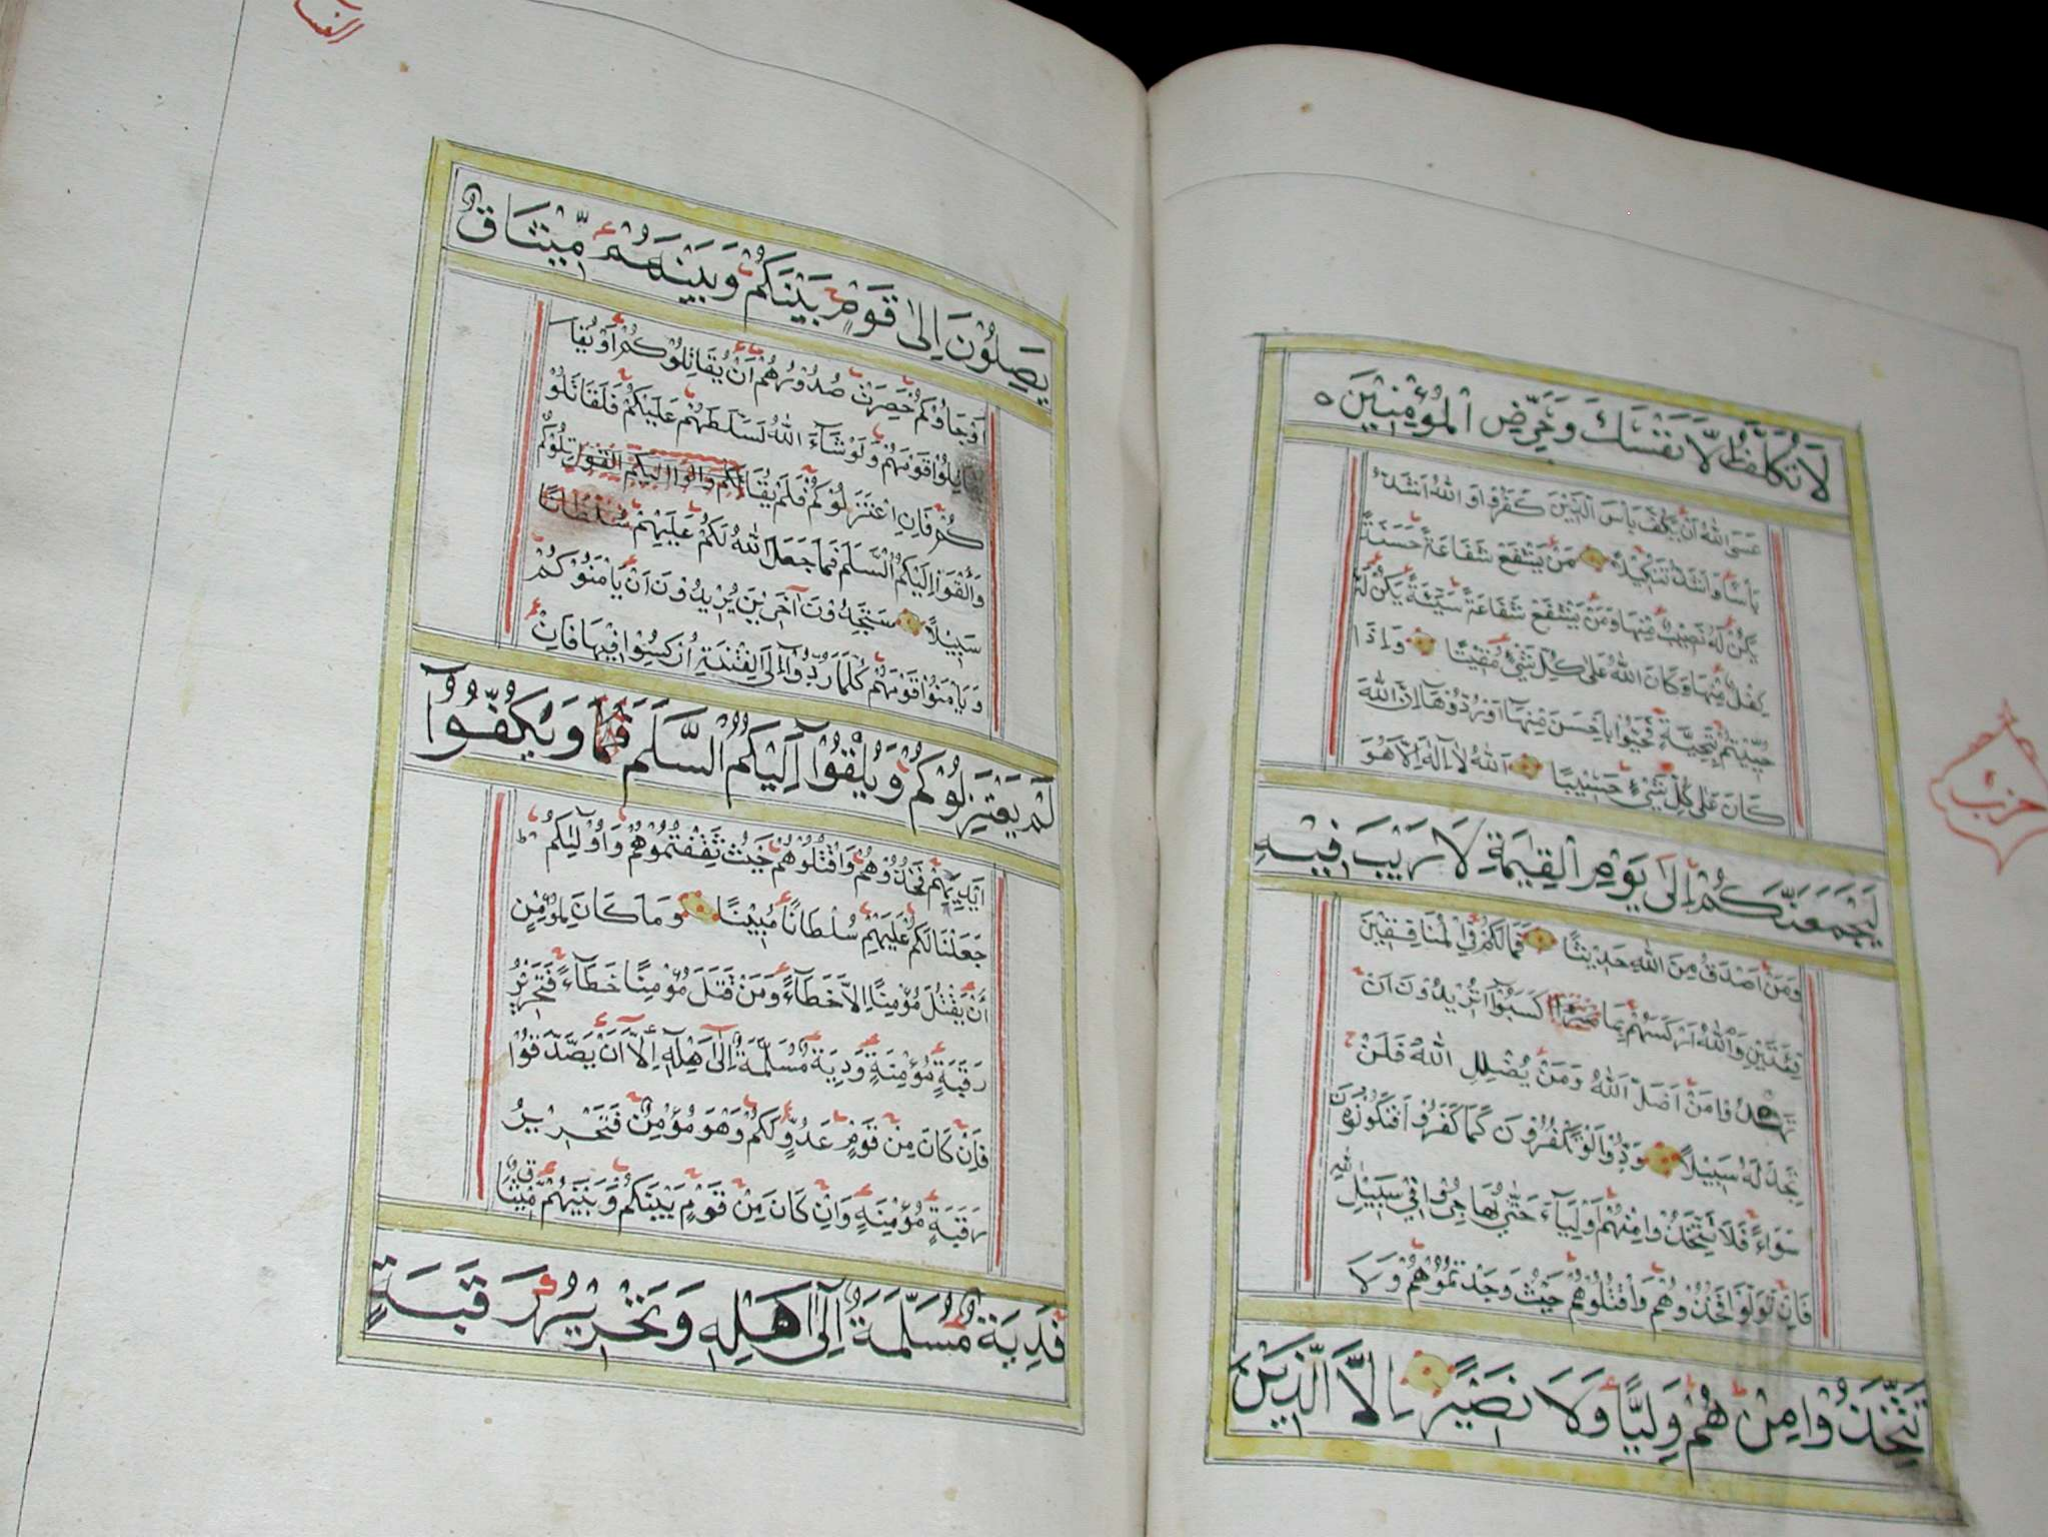 لَا تُكَلَّفُ اِلَّا نَفْسَكَ وَحَرِّضِ الْمُؤْمِنِيْنَ
عَسَى اللّٰهُ اَنْ يَكُفَّ بَاْسَ الَّذِيْنَ كَفَرُوْا وَاللّٰهُ اَشَدُّ
بَاْسًا وَاَشَدُّ تَنْكِيْلًا مَنْ يَشْفَعْ شَفَاعَةً حَسَنَةً
يَكُنْ لَهُ نَصِيْبٌ مِنْهَا وَمَنْ يَشْفَعْ شَفَاعَةً سَيِّئَةً يَكُنْ لَهُ
كِفْلٌ مِنْهَا وَكَانَ اللّٰهُ عَلٰى كُلِّ شَيْءٍ مُقِيْتًا وَاِذَا
حُيِّيْتُمْ بِتَحِيَّةٍ فَحَيُّوْا بِاَحْسَنَ مِنْهَا اَوْ رُدُّوْهَا اِنَّ اللّٰهَ
كَانَ عَلٰى كُلِّ شَيْءٍ حَسِيْبًا اَللّٰهُ لَا اِلٰهَ اِلَّا هُوَ
لَيَجْمَعَنَّكُمْ اِلٰى يَوْمِ الْقِيٰمَةِ لَا رَيْبَ فِيْهِ
وَمَنْ اَصْدَقُ مِنَ اللّٰهِ حَدِيْثًا فَمَا لَكُمْ فِي الْمُنَافِقِيْنَ
فِئَتَيْنِ وَاللّٰهُ اَرْكَسَهُمْ بِمَا كَسَبُوْا اَتُرِيْدُوْنَ اَنْ
تَهْدُوْا مَنْ اَضَلَّ اللّٰهُ وَمَنْ يُضْلِلِ اللّٰهُ فَلَنْ
تَجِدَ لَهُ سَبِيْلًا وَدُّوْا لَوْ تَكْفُرُوْنَ كَمَا كَفَرُوْا فَتَكُوْنُوْنَ
سَوَاءً فَلَا تَتَّخِذُوْا مِنْهُمْ اَوْلِيَآءَ حَتّٰى يُهَاجِرُوْا فِيْ سَبِيْلِ اللّٰهِ
فَاِنْ تَوَلَّوْا فَخُذُوْهُمْ وَاقْتُلُوْهُمْ حَيْثُ وَجَدْتُمُوْهُمْ وَلَا
تَتَّخِذُوْا مِنْهُمْ وَلِيًّا وَلَا نَصِيْرًا اِلَّا الَّذِيْنَ
حزب
يَصِلُوْنَ اِلٰى قَوْمٍ بَيْنَكُمْ وَبَيْنَهُمْ مِّيْثَاقٌ
اَوْ جَاؤُكُمْ حَصِرَتْ صُدُوْرُهُمْ اَنْ يُقَاتِلُوْكُمْ اَوْ يُقَا
يِلُوْا قَوْمَهُمْ وَلَوْ شَآءَ اللّٰهُ لَسَلَّطَهُمْ عَلَيْكُمْ فَلَقَاتَلُوْ
كُمْ فَاِنِ اعْتَزَلُوْكُمْ فَلَمْ يُقَاتِلُوْكُمْ
وَاَلْقَوْا اِلَيْكُمُ السَّلَمَ فَمَا جَعَلَ اللّٰهُ لَكُمْ عَلَيْهِمْ سُلْطَانًا
سَبِيْلًا سَتَجِدُوْنَ اٰخَرِيْنَ يُرِيْدُوْنَ اَنْ يَاْمَنُوْكُمْ
وَيَاْمَنُوْا قَوْمَهُمْ كُلَّمَا رُدُّوْا اِلَى الْفِتْنَةِ اُرْكِسُوْا فِيْهَا فَاِنْ
لَمْ يَعْتَزِلُوْكُمْ وَيُلْقُوْا اِلَيْكُمُ السَّلَمَ فَمَا وَيَكُفُّوْا
اَيْدِيَهُمْ فَخُذُوْهُمْ وَاقْتُلُوْهُمْ حَيْثُ ثَقِفْتُمُوْهُمْ وَاُولٰئِكُمْ
جَعَلْنَا لَكُمْ عَلَيْهِمْ سُلْطَانًا مُبِيْنًا وَمَا كَانَ لِمُؤْمِنٍ
اَنْ يَقْتُلَ مُؤْمِنًا اِلَّا خَطَاءً وَمَنْ قَتَلَ مُؤْمِنًا خَطَاءً فَتَحْرِيْرُ
رَقَبَةٍ مُؤْمِنَةٍ وَدِيَةٌ مُسَلَّمَةٌ اِلٰى اَهْلِهِ اِلَّا اَنْ يَصَّدَّقُوْا
فَاِنْ كَانَ مِنْ قَوْمٍ عَدُوٍّ لَكُمْ وَهُوَ مُؤْمِنٌ فَتَحْرِيْرُ
رَقَبَةٍ مُؤْمِنَةٍ وَاِنْ كَانَ مِنْ قَوْمٍ بَيْنَكُمْ وَبَيْنَهُمْ مِّيْثَاقٌ
فَدِيَةٌ مُسَلَّمَةٌ اِلٰى اَهْلِهِ وَتَحْرِيْرُ رَقَبَةٍ